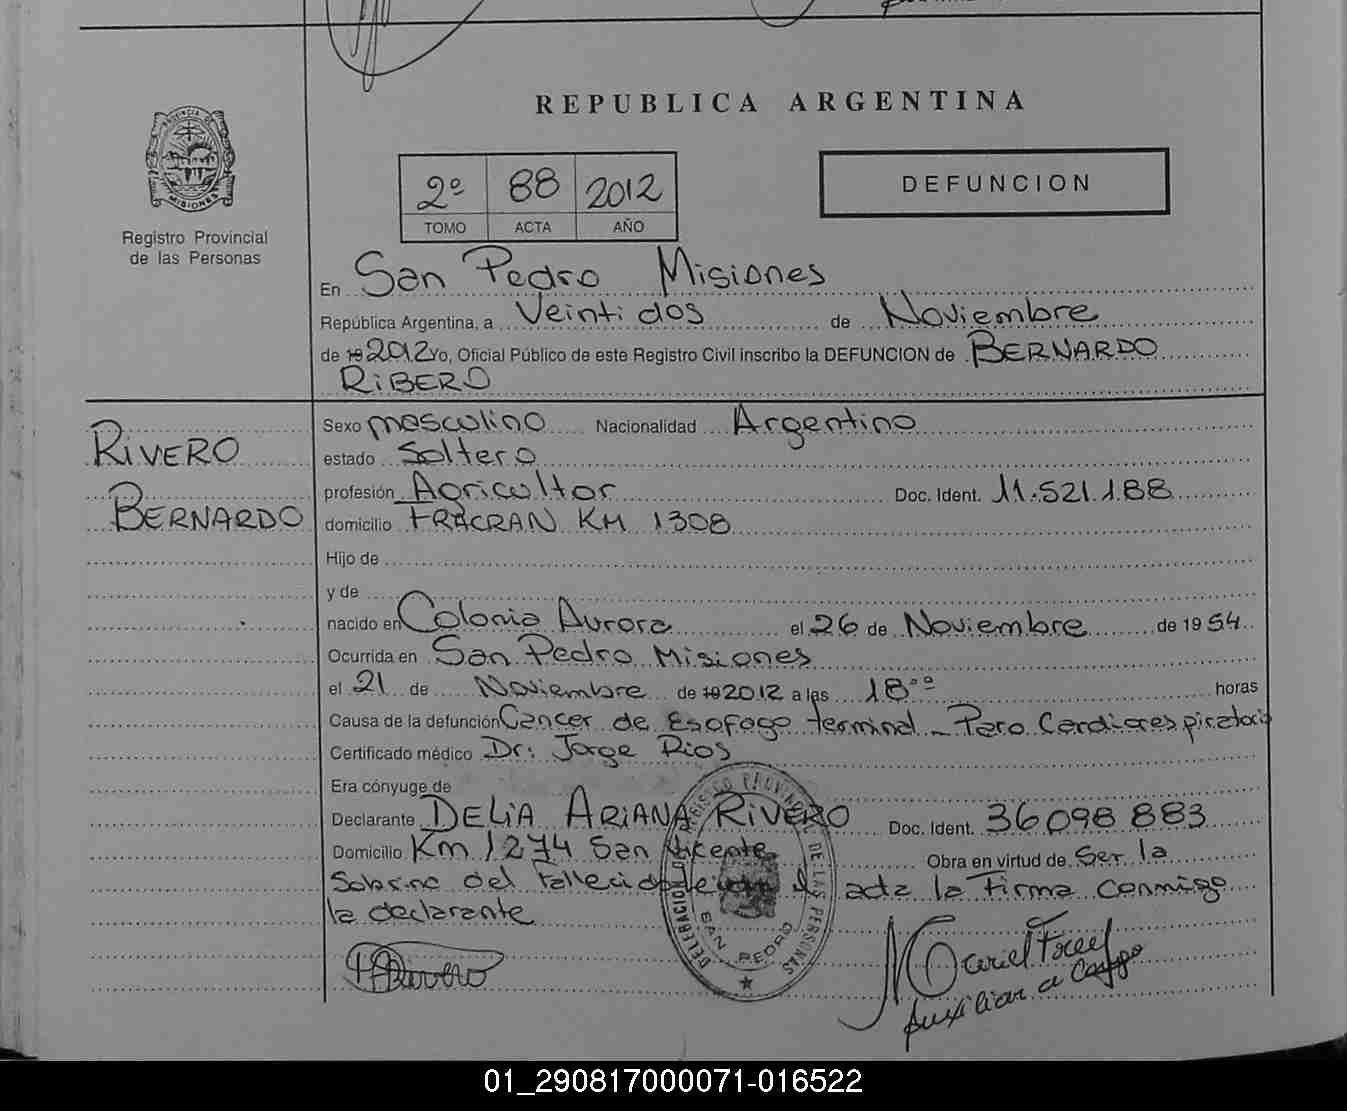 REPUBLICA ARGENTINA
PROVINCIA DE MISIONES
Registro Provincial
de las Personas
2º 88 2012
TOMO ACTA AÑO
DEFUNCION
En San Pedro Misiones
República Argentina, a Veinti dos de Noviembre
de 19 2012 Yo, Oficial Público de este Registro Civil inscribo la DEFUNCION de BERNARDO
RIBERO
RIVERO
BERNARDO
Sexo masculino Nacionalidad Argentino
estado Soltero
profesión Agricultor Doc. Ident. 11.521.188
domicilio FRACRAN KM 1308
Hijo de
y de
nacido en Colonia Aurora el 26 de Noviembre de 1954
Ocurrida en San Pedro Misiones
el 21 de Noviembre de 19 2012 a las 18ºº horas
Causa de la defunción Cancer de Esofogo terminal - Paro Cardiorespiratorio
Certificado médico Dr: Jorge Rios
Era cónyuge de
Declarante DELIA ARIANA RIVERO Doc. Ident. 36098883
Domicilio Km 1274 San Vicente Obra en virtud de Ser la
Sobrina del fallecido el acta la firma conmigo
la declarante
DELEGACION DEL REGISTRO PROVINCIAL DE LAS PERSONAS
SAN PEDRO
Rivero
Auxiliar a Cargo
01_290817000071-016522